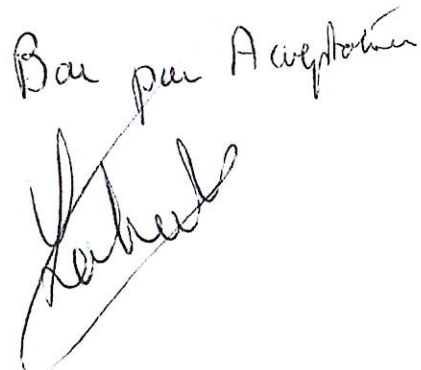 Bon pour Acceptation